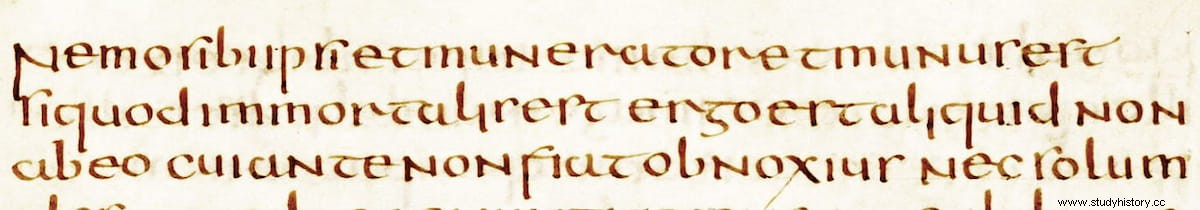 Nemosibiipsi etmuneratoretmunusest
siquodimmortalisest ergoestaliquid non
abeo cuiantenonfiatobnoxius necsolum
www.studyhistory.cc